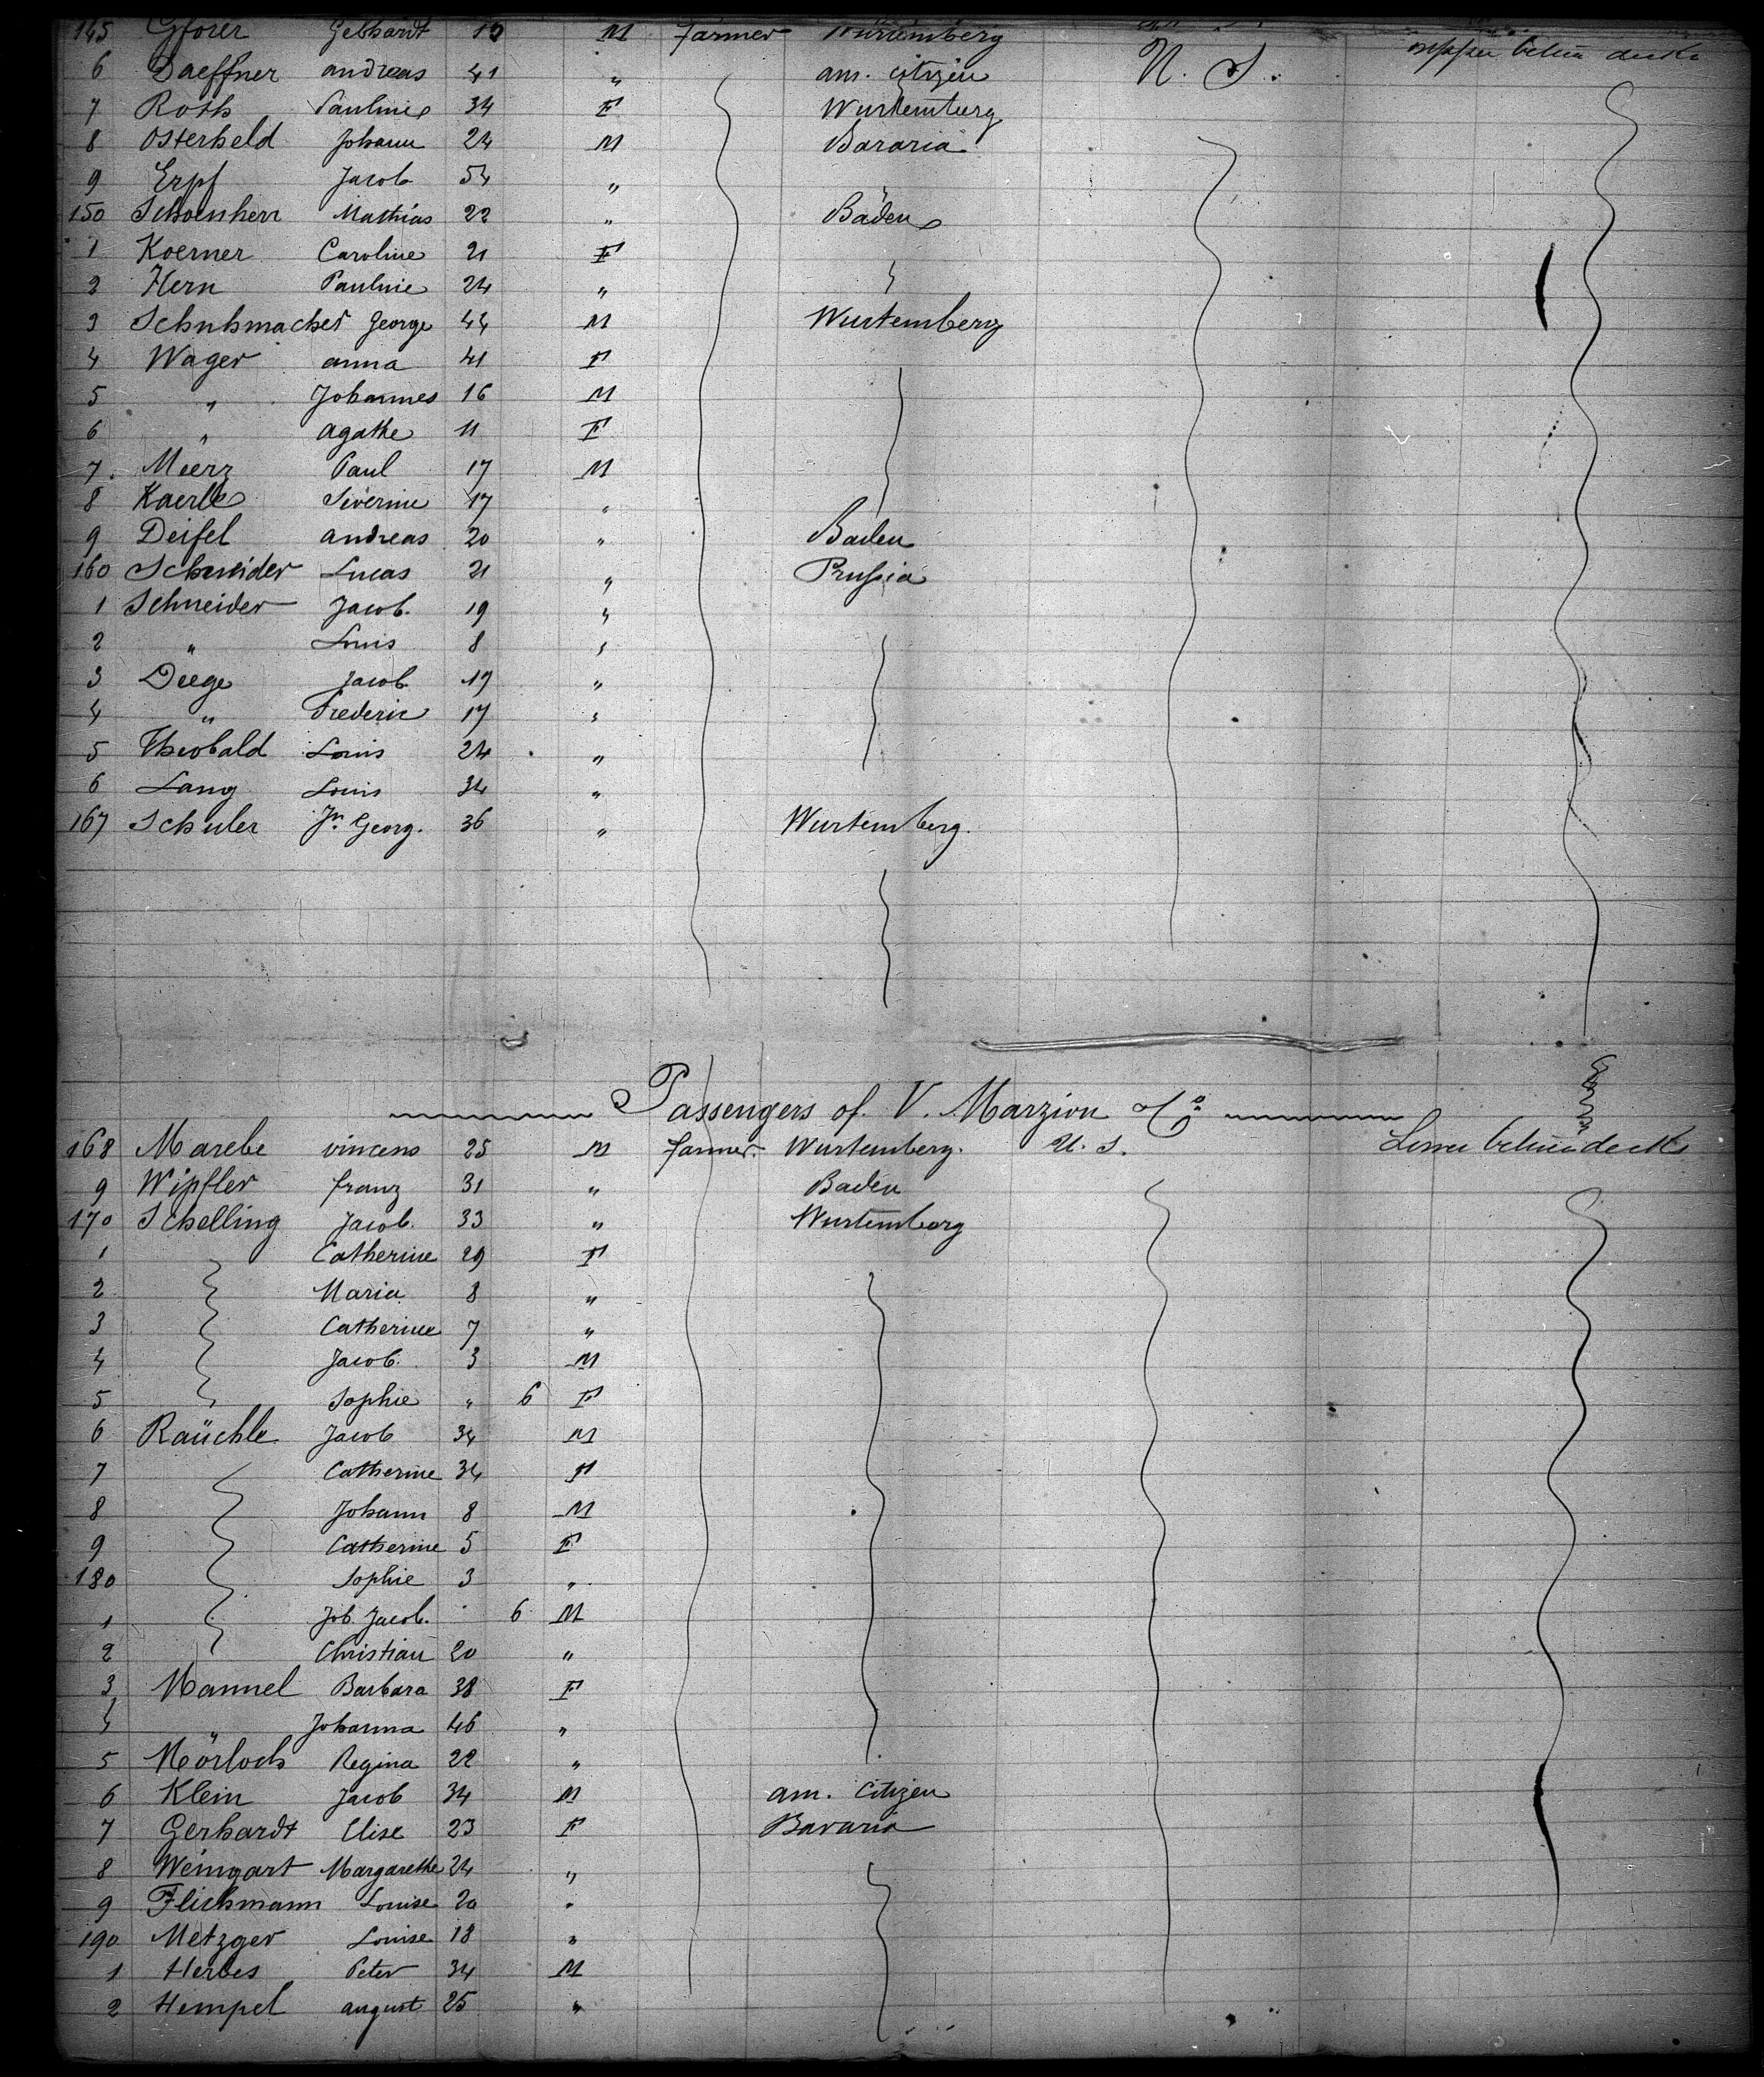 145 Gforer Gebhardt M Farmer Würtemberg upper betwn deck
6 Daeffner andreas 41 " am. citizen U. S.
7 Roth Pauline 34 F Wurtemburg
8 Osterheld Johann 24 M Bararia
9 Erpf Jacob 54 "
150 Schoenherr Mathias 22 " Baden
1 Koerner Caroline 21 F
2 Kern Pauline 24 "
3 Schuhmacher George 44 M Wurtemberg
4 Wager anna 41 F
5 " Johannes 16 M
6 " agathe 11 F
7 Merz Paul 17 M
8 Kaerle Siverine 17 "
9 Deifel andreas 20 " Baden
160 Schneider Lucas 21 " Prussia
1 Schneider Jacob. 19 "
2 " Louis 8 "
3 Deege Jacob 19 "
4 " Frederic 17 "
5 Theobald Louis 24 "
6 Lang Louis 34 "
167 Schuler Jn. Georg. 36 " Wurtemberg.
Passengers of V. Marzion & Co
168 Marebe vincens 25 M farmer. Wurtemberg. U. S. Lower betwn deck
9 Wipfler franz 31 " Baden
170 Schelling Jacob. 33 " Wurtemberg
1 Catherine 29 F
2 Maria 8 "
3 Catherine 7 "
4 Jacob. 3 M
5 Sophie " 6 F
6 Raüchle Jacob 34 M
7 Catherine 34 F
8 Johann 8 M
9 Catherine 5 F
180 Sophie 3 "
1 Joh. Jacob. 6 M
2 Christian 20 "
3 Mannel Barbara 38 F
4 " Johanna 46 "
5 Mörloch Regina 22 "
6 Klein Jacob 34 M am. Citizen
7 Gerhardt Elise 23 F Bavaria
8 Weingart Margarethe 24 "
9 Flickmann Louise 20 "
190 Metzger Louise 18 "
1 Herbes Peter 34 M
2 Hempel august 25 "